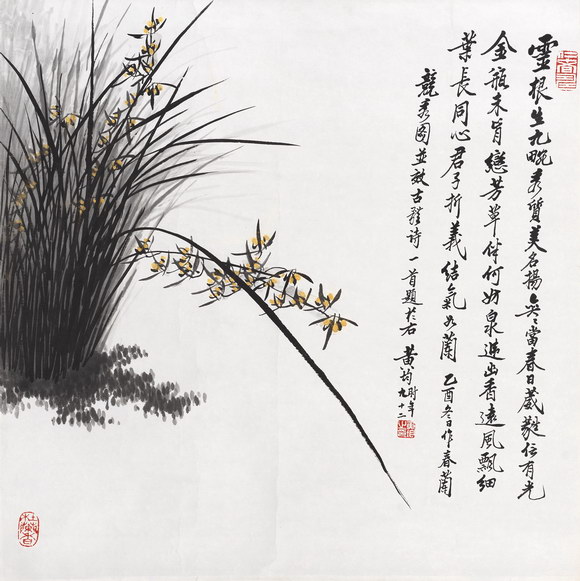 靈根生九畹秀質美名揚無當春日葳蕤信有光
金瓶未肯戀芳草伴何妨泉遠出香遠風飄細
葉長同心君子折義結氣如蘭 乙酉冬日作春蘭
競秀圖並效古體詩一首題於右 黃均時年九十二